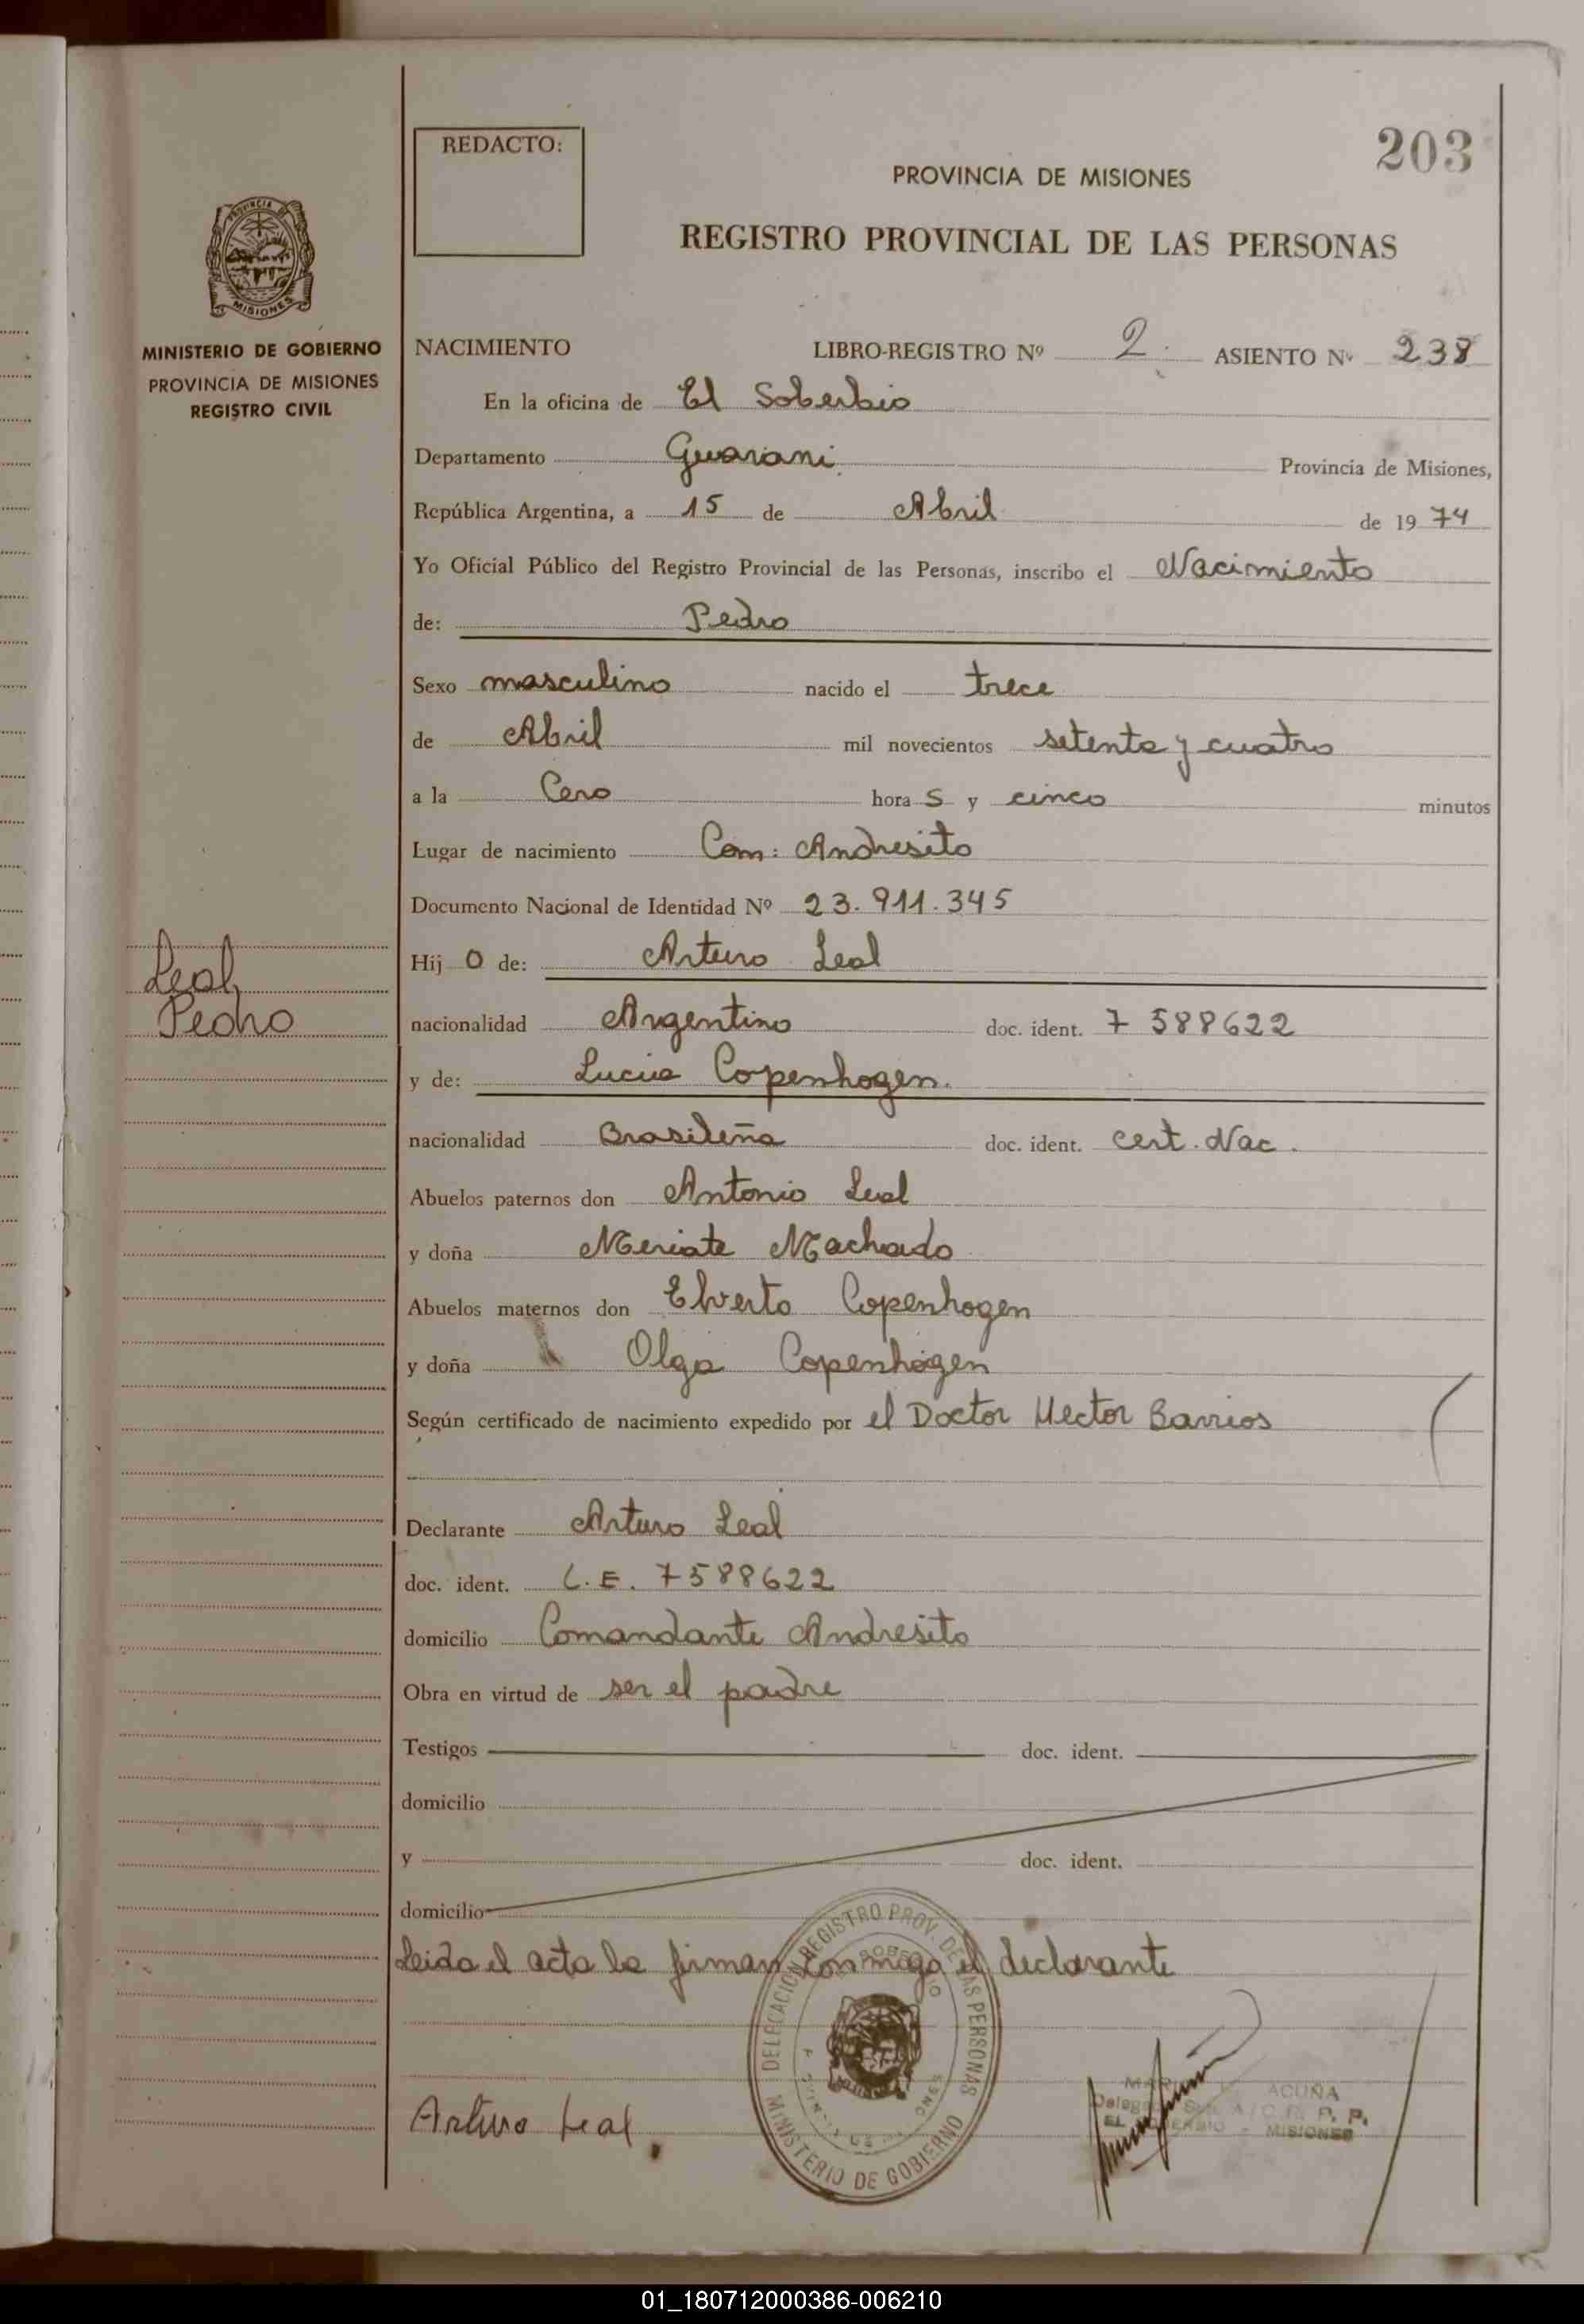 REDACTO:
203
PROVINCIA DE MISIONES
REGISTRO PROVINCIAL DE LAS PERSONAS
PROVINCIA DE
MISIONES
MINISTERIO DE GOBIERNO
PROVINCIA DE MISIONES
REGISTRO CIVIL
NACIMIENTO LIBRO-REGISTRO Nº 2 ASIENTO Nº 238
En la oficina de El Soberbio
Departamento Guarani Provincia de Misiones,
República Argentina, a 15 de Abril de 1974
Yo Oficial Público del Registro Provincial de las Personas, inscribo el Nacimiento
de: Pedro
Sexo masculino nacido el trece
de Abril mil novecientos setenta y cuatro
a la Cero hora s y cinco minutos
Lugar de nacimiento Com: Andresito
Documento Nacional de Identidad Nº 23.911.345
Leal,
Pedro
Hij o de: Arturo Leal
nacionalidad Argentino doc. ident. 7 588622
y de: Lucia Copenhogen.
nacionalidad Brasileña doc. ident. cert. Nac.
Abuelos paternos don Antonio Leal
y doña Meriate Machado
Abuelos maternos don Elverto Copenhogen
y doña Olga Copenhogen
Según certificado de nacimiento expedido por el Doctor Hector Barrios
Declarante Arturo Leal
doc. ident. L.E. 7588622
domicilio Comandante Andresito
Obra en virtud de ser el padre
Testigos doc. ident.
domicilio
y doc. ident.
domicilio
Leida el acta la firman conmigo el declarante
DELEGACION REGISTRO PROV. DE LAS PERSONAS
MINISTERIO DE GOBIERNO
Arturo Leal
ACUÑA
EL SOBERBIO - MISIONES
01_180712000386-006210